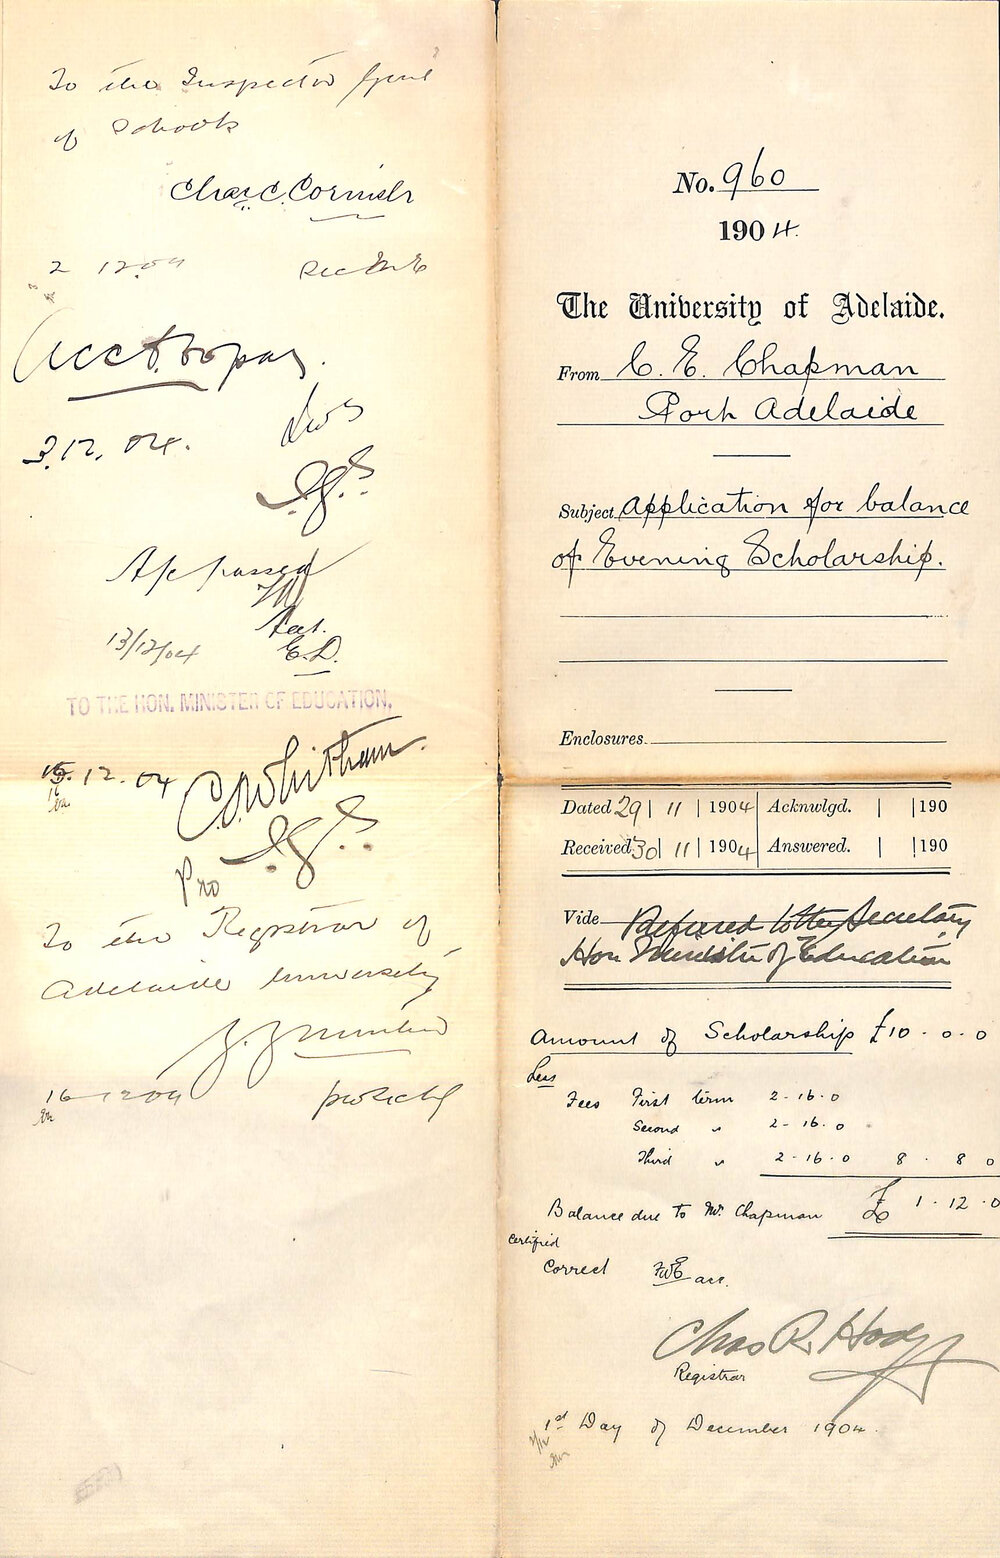 To the Inspector Genl
of Schools
Chas. C. Cornish
2 12.04 Sec M E
Acct
3.12.04.
I.G.S.
A/c passed
Act.
13/12/04 E.D.
TO THE HON. MINISTER OF EDUCATION.
15.12.04 C. Whitham
Pro I.G.S.
To the Registrar of
Adelaide University
16 12 04 pro Sec
No. 960
1904.
The University of Adelaide.
From C. E. Chapman
Port Adelaide
Subject Application for balance
of Evening Scholarship.
Enclosures.
Dated 29 | 11 | 1904 Acknwlgd. | | 190
Received 30 | 11 | 1904 Answered. | | 190
Vide Referred to the Secretary
Hon Minister of Education
Amount of Scholarship £10 . 0 . 0
Less
Fees First term 2 - 16 . 0
Second " 2 - 16 . 0
Third " 2 - 16 . 0 8 . 8 0
Balance due to Mr. Chapman £ 1 . 12 . 0
Certified
Correct FWE acc.
Chas R. Hodge
Registrar
1st Day of December 1904.